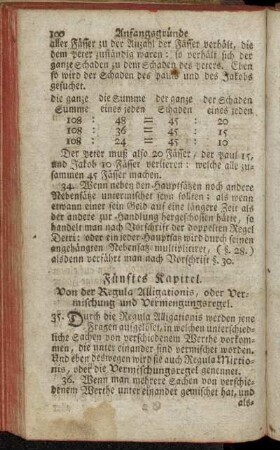 100 Anfangsgründe
aller Fässer zu der Anzahl der Fässer verhält, die
dem Peter zuständig waren: so verhält sich der
ganze Schaden zu dem Schaden des Peters. Eben
so wird der Schaden des Pauls und des Jakobs
gesuchet.
die ganze die Summe der ganze der Schaden
Summe eines jeden Schaden eines jeden
108 : 48 = 45 : 20
108 : 36 = 45 : 15
108 : 24 = 45 : 10
Der Peter muß also 20 Fässer, der Paul 15,
und Jakob 10 Fässer verlieren: welche alle zu-
sammen 45 Fässer machen.
34. Wenn neben den Hauptsätzen noch andere
Nebensätze untermischet seyn sollen: als wenn
etwann einer sein Geld auf eine längere Zeit als
der andere zur Handlung hergeschossen hätte, so
handelt man nach Vorschrift der doppelten Regel
Detri: oder ein jeder Hauptsatz wird durch seinen
angehängten Nebensatz multiplicieret, (§. 28.)
alsdenn verfährt man nach Vorschrift §. 30.
Fünftes Kapitel.
Von der Regula Alligationis, oder Ver-
mischung und Vermengungsregel.
35. Durch die Regula Alligationis werden jene
Fragen aufgelöset, in welchen unterschied-
liche Sachen von verschiedenem Werthe vorkom-
men, die unter einander sind vermischet worden.
Und eben deswegen wird sie auch Regula Mixtio-
nis, oder die Vermischungsregel genennet.
36. Wenn man mehrere Sachen von verschie-
denem Werthe unter einander gemischet hat, und
als-